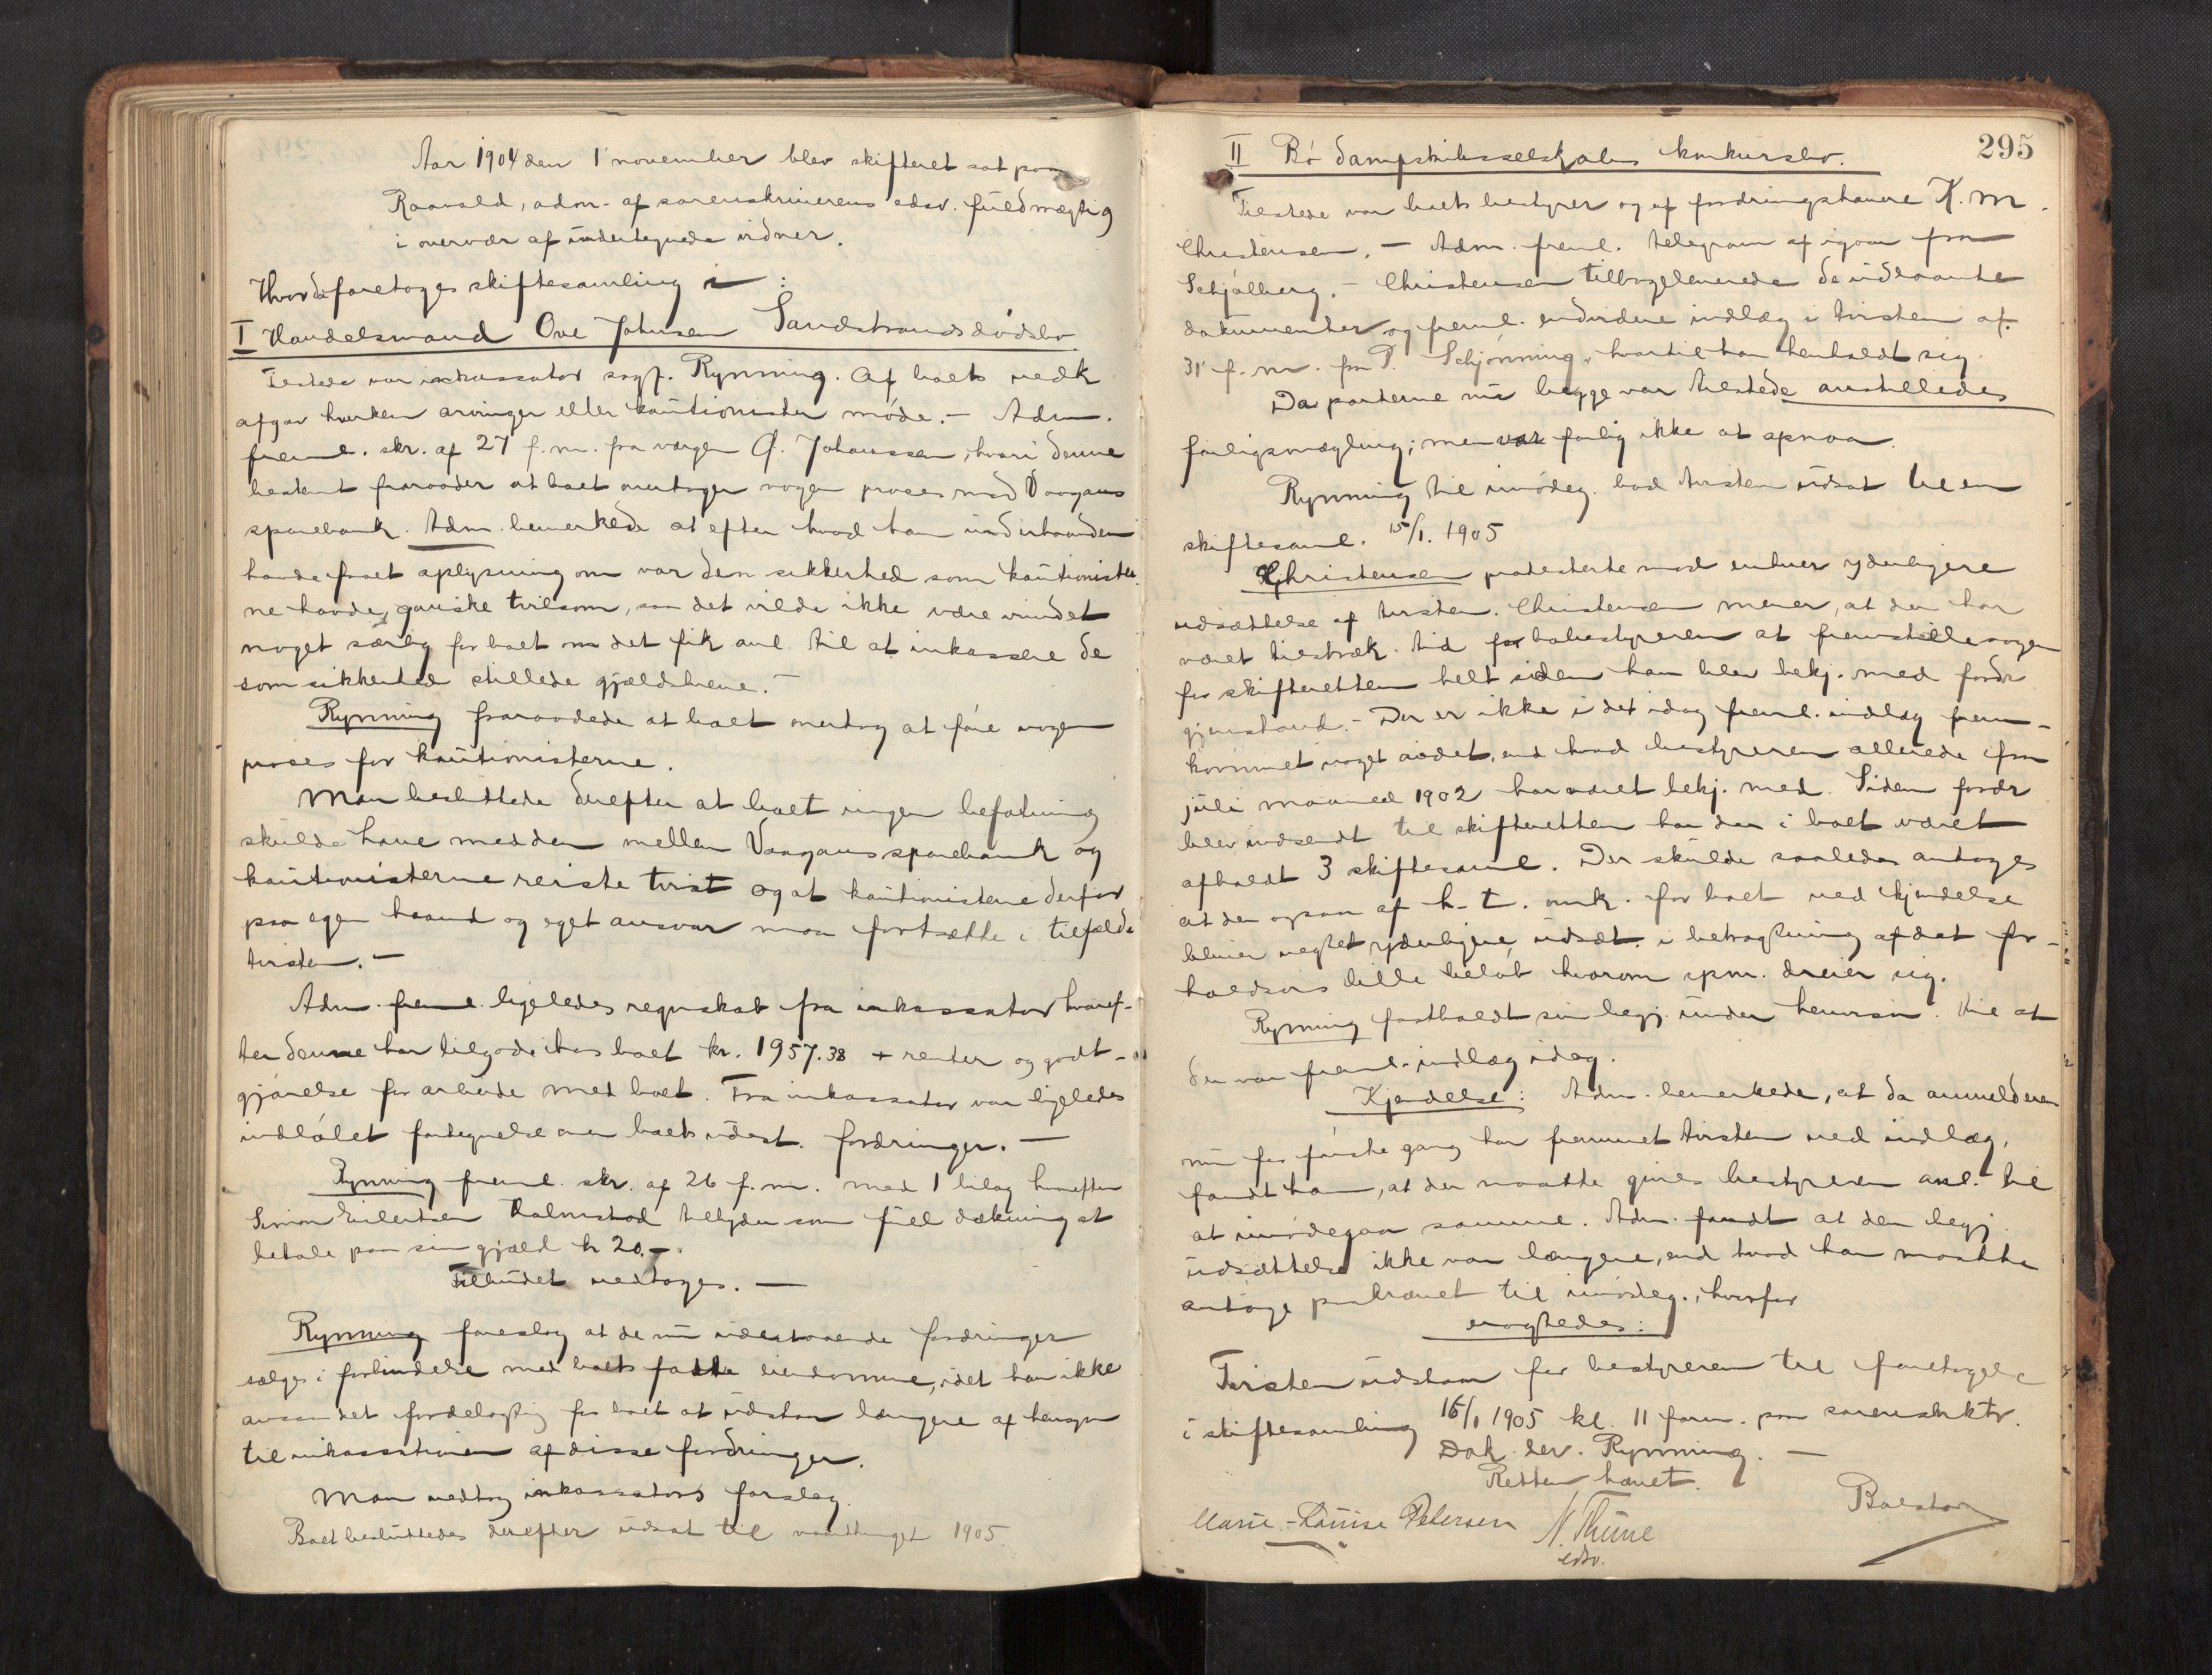 Aar 1904 den 1 november blev skifteret sat paa
Raavald, adm. af sorenskriverens edsv. fuldmægtig
i overvær af undertegnede vidner.
Hvorda foretoges skiftesamling i :
I Handelsmand Ove Johnsen Sandstrands dødsbo
Tilstede var inkassator sagf. Rynning. Af boets vedk
afgav hverken arvinger eller kautionister møde. – Adm.
freml. skr. af 27 f.m. fra vergen O. Johanssen, hvori denne
bestemt fraraader at boet overtager nogen proses med Vaagans
sparebank. Adm. bemerkede at efter hvad han underhaanden
havde faaet oplysning om var den sikkerhed som kautionister
ne havde, ganske tvilsom, saa det vilde ikke være vundet
noget særlig for boet om det fik anl. til at inkassere de
som sikkerhed stillede gjældsbreve. –
Rynning fraraadede at boet overtog at føre nogen
proses for kautionisterne.
Man besluttede derefter at boet ingen befatning
skulde have med den mellem Vaagans sparebank og
kautionisterne reiste tvist og at kautionisterne derfor
paa egen haand og eget ansvar maa fortsætte i tilfælde
tvisten. –
Adm. freml. ligeledes regnskab fra inkassator hvoref-
ter denne har tilgode hos boet kr. 1957.38 + renter og godt-
gjørelse for arbeide med boet. Fra inkassator var ligeledes
indløbet fortegnelse over boets udest. fordringer. –
Rynning freml. skr. af 26 f.m. med 1 bilag hvorefter
Simon Eilertsen tilbyder som fuld dækning at
betale paa sin gjæld kr 20. –.
Tilbudet vedtoges. –
Rynning foreslog at de nu udestaaende fordringer
sælges i forbindelse med boets faste eiendomme, idet han ikke
ansaa det fordelagtig for boet at udstaa længere af hensyn
til inkassationen af disse fordringer.
Man vedtog inkassators forslag.
Boet besluttedes derefter udsat til vaarthinget 1905.
295
II Bø dampskibsselskabs konkursbo.
Tilstede var boets bestyrer og af fordringshavere K. M.
Christensen. – Adm. freml. telegram af igaar fra
Schjølberg. – Christensen tilbageleverede de udlaante
dokumenter og freml. endvidere indlæg i tvisten af
31 f.m. fra P. Schjønning, hvortil han henholdt sig.
Da parterne nu begge var tilstede anstilledes
forligsmægling; men var forlig ikke at opnaa.
Rynning til imødeg. bad tvisten udsat til en
skiftesaml. 15/1. 1905
Christensen protesterte mod enhver yderligere
udsættelse af tvisten. Christensen mener, at der har
været tilstræk. tid for bobestyreren at fremstille sagen
for skifteretten helt siden han blev bekj. med fordr
gjenstand. – Der er ikke i det idag freml. indlæg frem-
kommet noget andet, end hvad bestyreren allerede fra
juli maaned 1902 har været bekj. med. Siden fordr
blev indsendt til skifteretten har der i boet været
afholdt 3 skiftesaml. Der skulde saaledes antages
at der ogsaa af h. t. omk. for boet ved kjendelse
bliver negtet yderligere udsæt. i betragtning af det for-
holdsvis lille beløb hvorom spm. dreier sig.
Rynning fastholdt sin begj. under henvisn. til at
der var freml. indlæg idag.
Kjendelse: Adm. bemerkede, at da anmelderen
nu for første gang har fremmet tvisten ved indlæg,
fandt han, at der maatte gives bestyreren anl. til
at imødegaa samme. Adm. fandt at den begj.
udsættelse ikke var længere, end hvad han maatte
antage paakrævet til imødeg., hvorfor
eragtedes:
Tvisten udstaar for bestyreren til foretagelse
i skiftesamling 16/1 1905 kl. 11 form. paa sorenskrktr.
Dok. lev. Rynning. –
Retten hævet.
Marie-Louise Petersen N. Thune
edsv.